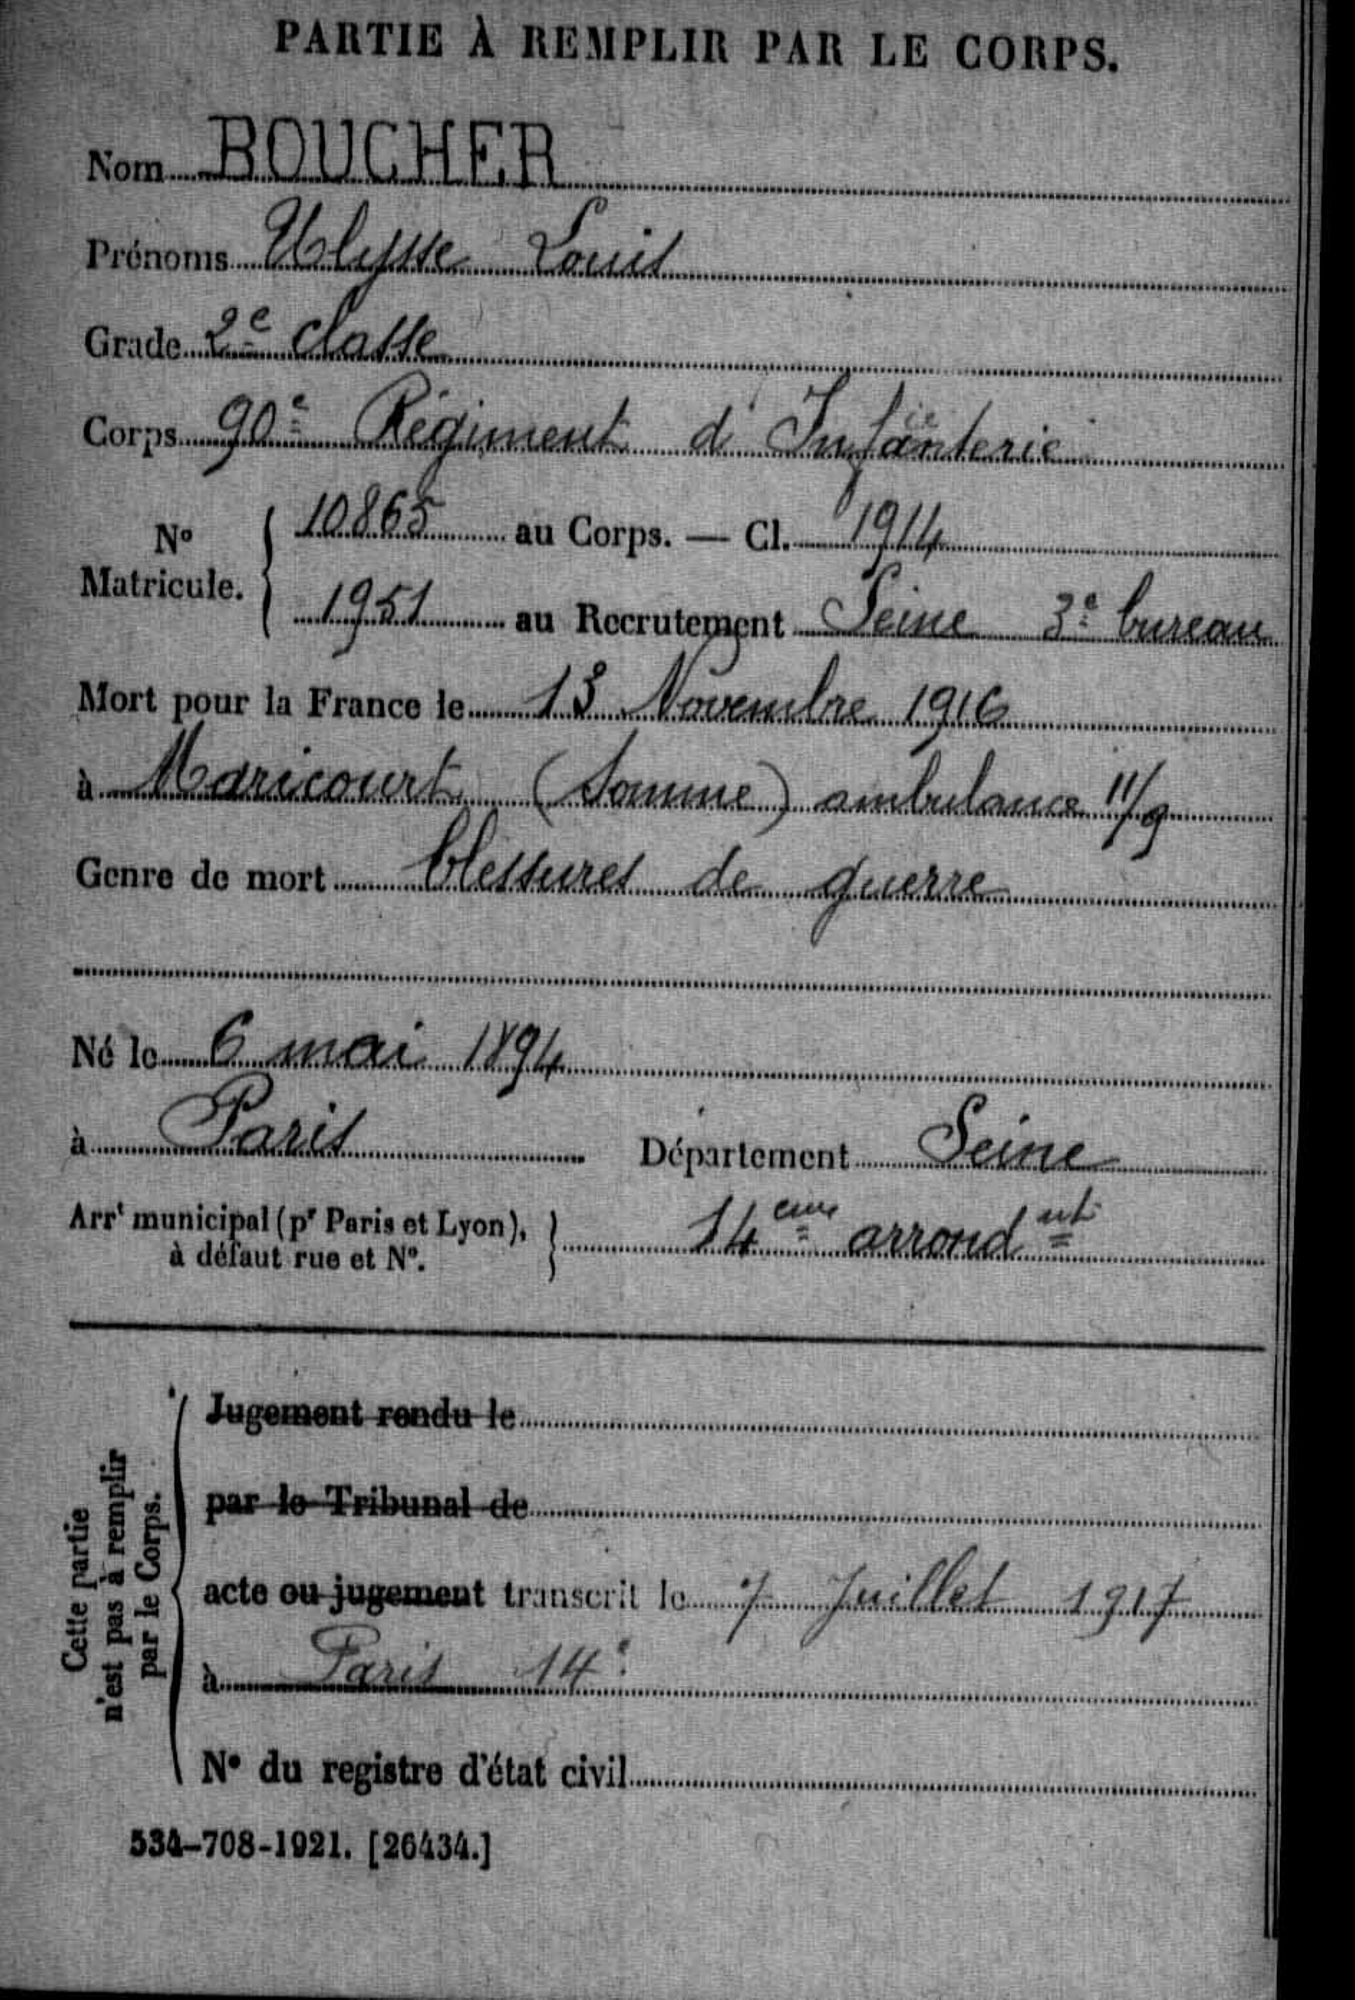 PARTIE À REMPLIR PAR LE CORPS.
Nom BOUCHER
Prénoms Ulysse Louis
Grade 2e classe
Corps 90e Régiment d'Infanterie
No Matricule. { 10865 au Corps. — Cl. 1914
1951 au Recrutement Seine 3e bureau
Mort pour la France le 13 Novembre 1916
à Maricourt (Somme) ambulance 11/9
Genre de mort blessures de guerre
Né le 6 mai 1894
à Paris Département Seine
Arrt municipal (pr Paris et Lyon), à défaut rue et No. } 14eme arrondnt
Cette partie n'est pas à remplir par le Corps.
Jugement rendu le
par le Tribunal de
acte ou jugement transcrit le 7 Juillet 1917
à Paris 14e
No du registre d'état civil
534-708-1921. [26434.]